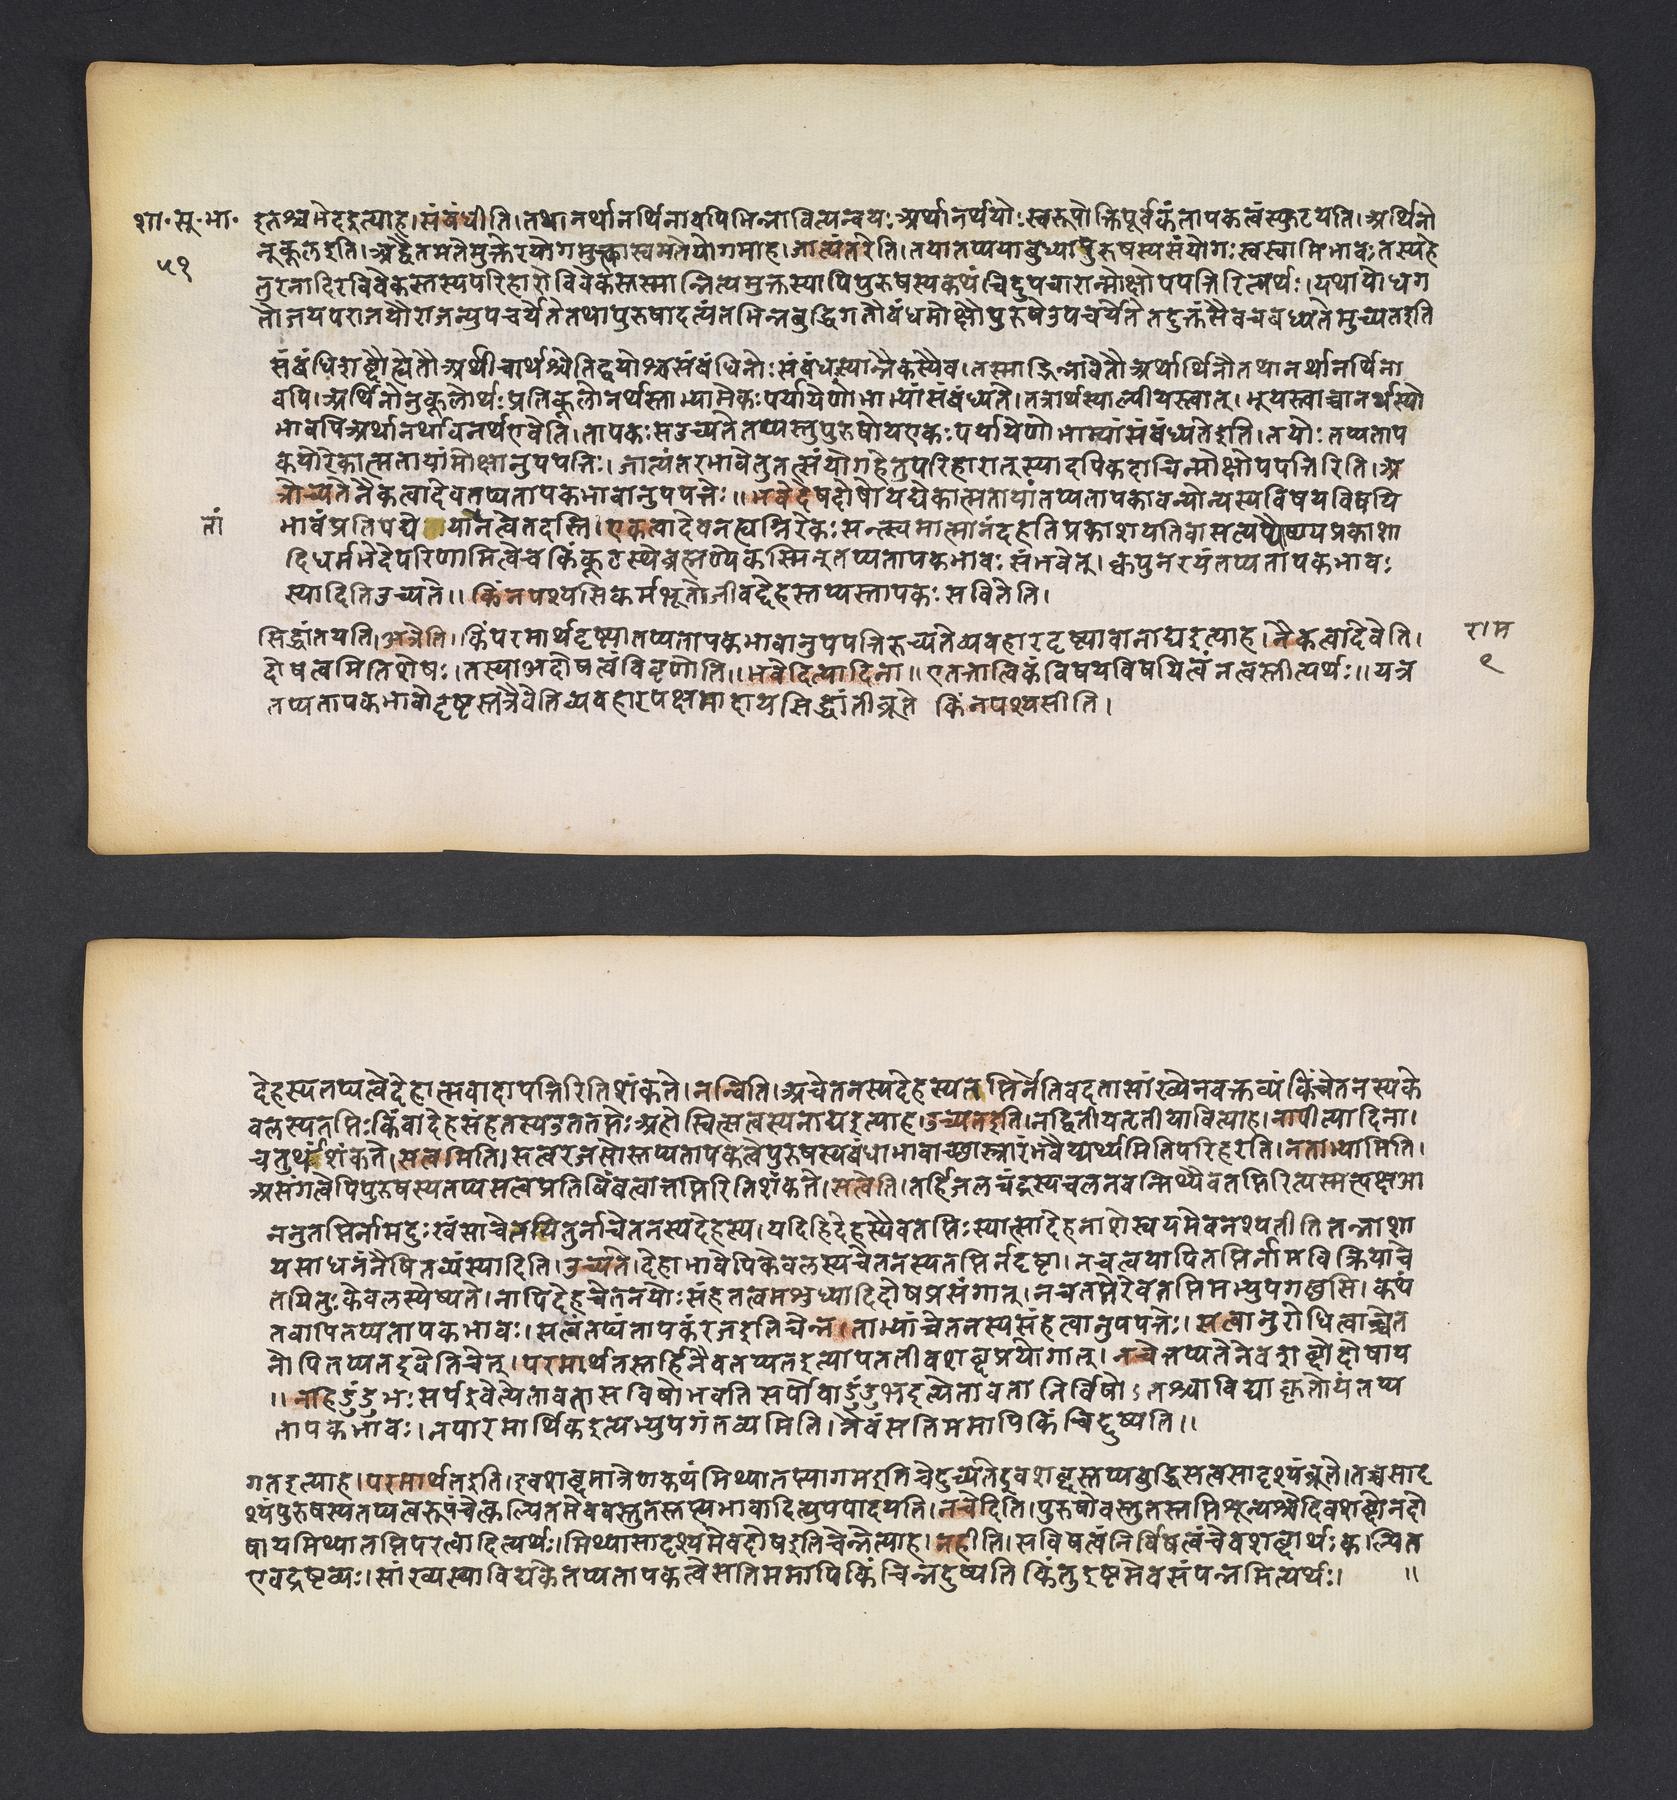 शा॰सू॰भा॰
५१
इतश्चभेदइत्याह।संबंधीति।तथानर्थानर्थिनावपिभिन्नावित्यन्वयः अर्थानर्थयोः स्वरूपोक्तिपूर्वकंतापकत्वंस्फुटयति।अर्थिनो
नुकूलइति।अद्वैतमतेमुक्तेरयोगमुक्त्वास्वमतेयोगमाह।जात्यंतरेति।तयातप्ययाबुध्यापुरुषस्यसंयोगः स्वस्वामिभावः तस्यहे
तुरनादिरविवेकस्तस्यपरिहारोविवेकस्तस्मान्नित्यमुक्तस्यापिपुरुषस्यकथंचिदुपचारान्मोक्षोपपत्तिरित्यर्थः।यथायोधग
तौजयपराजयौराजन्युपचर्येतेतथापुरुषादत्यंतभिन्नबुद्धिगतौबंधमोक्षौपुरुषेउपचर्येतेतदुक्तंसैवचबध्यतेमुच्यतइति
संबंधिशब्दौह्येतौअर्थीचार्थश्चेतिद्वयोश्चसंबंधिनोः संबंधःस्यान्नैकस्यैव।तस्माद्भिन्नावेतौअर्थार्थिनौतथानर्थानर्थिना
वपि।अर्थिनोनुकूलोर्थः प्रतिकूलोनर्थस्ताभ्यामेकः पर्यायेणोभाभ्यांसंबध्यते।तत्रार्थस्याल्पीयस्त्वात्।भूयस्त्वाच्चानर्थस्यो
भावपिअर्थानर्थावनर्थएवेति।तापकः सउच्यतेतप्यस्तुपुरुषोयएकः पर्यायेणोभाभ्यांसंबध्यतेइति।तयोः तप्यताप
कयोरेकात्मतायांमोक्षानुपपत्तिः।जात्यंतरभावेतुतत्संयोगहेतुपरिहारात्स्यादपिकदाचिन्मोक्षोपपत्तिरिति।अ
त्रोच्यतेनैकत्वादेवतप्यतापकभावानुपपत्तेः॥भवेदेषदोषोयद्येकात्मतायांतप्यतापकावन्योन्यस्यविषयविषयि
तां
भावंप्रतिपद्येयातांनत्वेतदस्ति।एकत्वादेवनह्यग्निरेकः सन्स्वमात्मानंदहतिप्रकाशयतिवासत्यप्यौष्ण्यप्रकाशा
दिधर्मभेदेपरिणामित्वेचकिंकूटस्थेब्रह्मण्येकस्मिन्तप्यतापकभावः संभवेत्।क्वपुनरयंतप्यतापकभावः
स्यादितिउच्यते॥किंनपश्यसिकर्मभूतोजीवद्देहस्तप्यस्तापकः सवितेति।
सिद्धांतयति।अत्रेति।किंपरमार्थदृष्ट्यातप्यतापकभावानुपपत्तिरुच्यतेव्यवहारदृष्ट्यावानाद्यइत्याह।नैकत्वादेवेति।
राम
दोषत्वमितिशेषः।तस्याअदोषत्वंविवृणोति॥भवेदित्यादिना॥एतत्तात्विकंविषयविषयित्वंनत्वस्तीत्यर्थः॥यत्र
तप्यतापकभावोदृष्टस्तत्रैवेतिव्यवहारपक्षमादायसिद्धांतीब्रूते किंनपश्यसीति।
देहस्यतप्यत्वेदेहात्मवादापत्तिरितिशंकते।नन्विति।अचेतनस्यदेहस्यतप्तिर्नेतिवदतासांख्येनवक्तव्यं किंचेतनस्यके
वलस्यतप्तिः किंवादेहसंहतस्यउततप्तेः अहोस्वित्सत्वस्यनाद्यइत्याह।उच्यतइति।नद्वितीयतृतीयावित्याह।नापीत्यादिना।
चतुर्थंशंकते।सत्वमिति।सत्वरजसोस्तप्यतापकत्वेपुरुषस्यबंधाभावाच्छास्त्रारंभवैयर्थ्यमितिपरिहरति।नताभ्यामिति।
असंगत्वेपिपुरुषस्यतप्यसत्वप्रतिबिंबत्वात्तप्तिरितिशंकते।सत्वेति।तर्हिजलचंद्रस्यचलनवन्मिथ्यैवतप्तिरित्यस्मत्पक्षआ
ननुतप्तिर्नामदुःखंसाचेतयितुर्नाचेतनस्यदेहस्य।यदिहिदेहस्यैवतप्तिः स्यात्सादेहनाशेस्वयमेवनश्यतीतितन्नाशा
यसाधनंनैषितव्यंस्यादिति।उच्यते।देहाभावेपिकेवलस्यचेतनस्यतप्तिर्नदृष्टा।नचत्वयापितप्तिर्नामविक्रियाचे
तयितुः केवलस्येष्यते।नापिदेहचेतनयोः संहतत्वमशुध्यादिदोषप्रसंगात्।नचतप्तेरेवतप्तिमभ्युपगच्छसि।कथं
तवापितप्यतापकभावः।सत्वंतप्यंतापकंरजइतिचेन्न।ताभ्यांचेतनस्यसंहतत्वानुपपत्तेः।सत्वानुरोधित्वाच्चेत
नोपितप्यतइवेतिचेत्।परमार्थतस्तर्हिनैवतप्यतइत्यापततीवशब्दप्रयोगात्।नचेत्तप्यतेनेवशब्दोदोषाय
॥नहिडुंडुभः सर्पइवेत्येतावतासविषोभवतिसर्पोवाडुंडुभइवेत्येतावतानिर्विषो ऽ तश्चाविद्याकृतोयंतप्य
तापकभावः।नपारमार्थिकइत्यभ्युपगंतव्यमिति।नैवंसतिममापिकिंचिद्दुष्यति॥
गतइत्याह।परमार्थतइति।इवशब्दमात्रेणकथंमिथ्यातप्त्यागमइतिचेदुच्यतेइवशब्दस्तप्यबुद्धिसत्वसादृश्यंब्रूते।तच्चसादृ
श्यंपुरुषस्यतप्यत्वरूपंचेत्कल्पितमेववस्तुतस्तप्त्यभावादित्युपपादयति।नचेदिति।पुरुषोवस्तुतस्तप्तिशून्यश्चेदिवशब्दोनदो
षायमिथ्यातप्तिपरत्वादित्यर्थः।मिथ्यासादृश्यमेवदोषइतिचेन्नेत्याह।नहीति।सविषत्वंनिर्विषत्वंचेवशब्दार्थः कल्पित
एवद्रष्टव्यः।सांख्यस्याविद्यकेतप्यतापकत्वेसतिममापिकिंचिन्नदुष्यति किंतुइष्टमेवसंपन्नमित्यर्थः। ॥